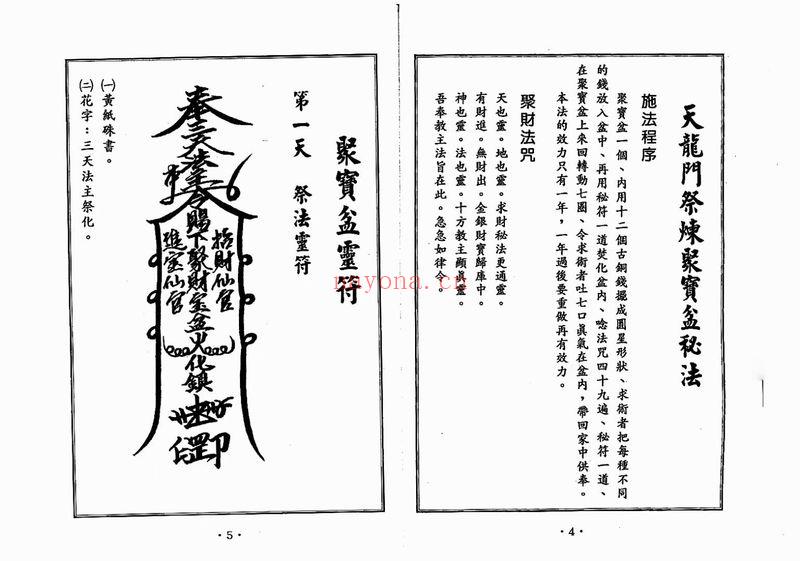 天龍門祭煉聚寶盆秘法
施法程序
聚寶盆一個、內用十二個古銅錢擺成圓星形狀、求術者把每種不同
的錢放入盆中、再用秘符一道焚化盆內、唸法咒四十九遍、秘符一道、
在聚寶盆上來回轉動七圈、令求術者吐七口眞氣在盆內，帶回家中供奉。
本法的效力只有一年，一年過後要重做再有效力。
聚財法咒
天也靈。地也靈。求財秘法更通靈。
有財進。無財出。金銀財寶歸庫中。
神也靈。法也靈。十方教主顯眞靈。
吾奉教主法旨在此。急急如律令。
·4·
聚寶盆靈符
第一天 祭法靈符
奉三天法主令賜下聚財宝盆火化鎮
招財仙官
進宝仙官
㈠黃紙硃書。
㈡花字：三天法主祭化。
·5·
nayona.cn